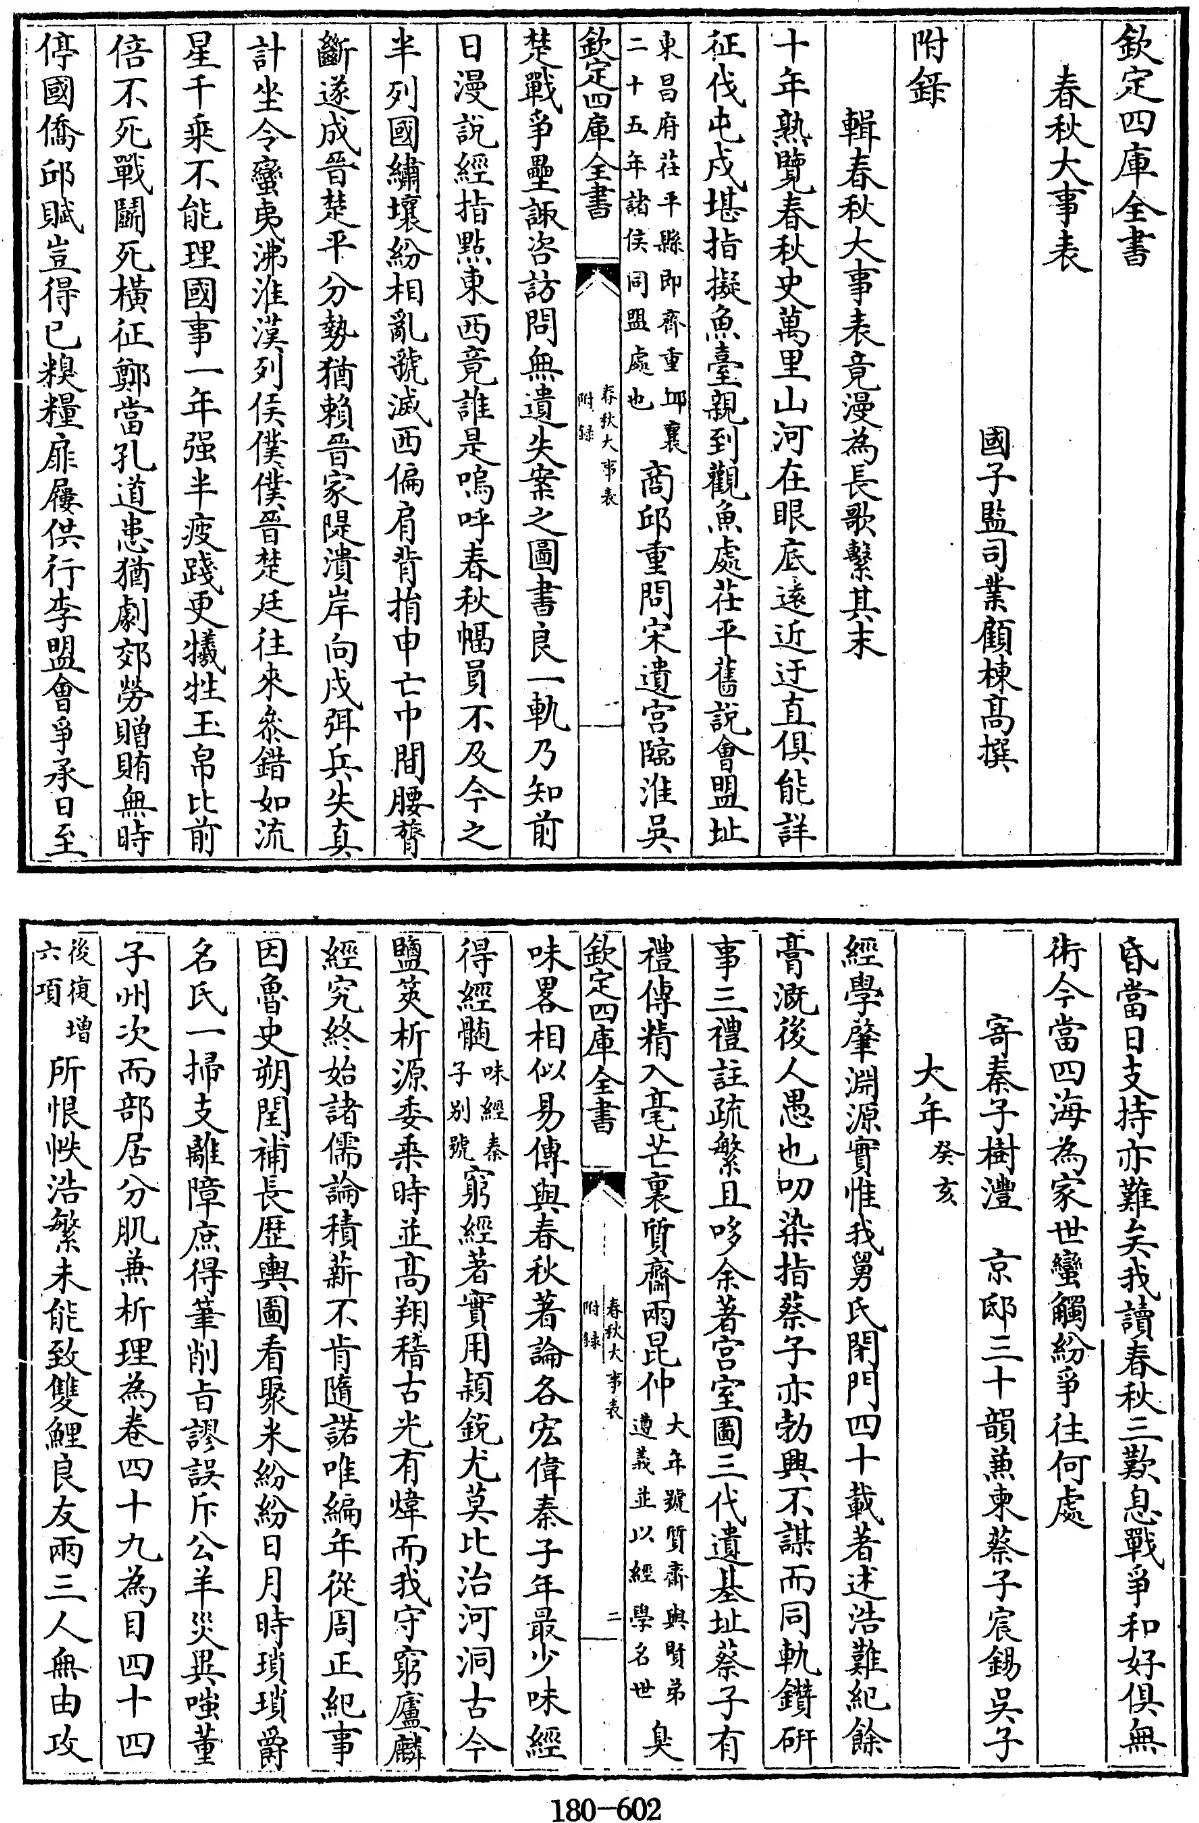 欽定四庫全書
春秋大事表
國子監司業顧棟高撰
附錄
輯春秋大事表竟漫為長歌繫其末
十年熟覽春秋史萬里山河在眼底遠近迂直俱能詳
征伐屯戍堪指擬魚臺親到觀魚處茌平舊說會盟址
東昌府茌平縣即齊重邱襄
二十五年諸侯同盟處也
商邱重問宋遺宮臨淮吳
欽定四庫全書
春秋大事表
附錄
一
楚戰爭壘諏咨訪問無遺失案之圖書良一軌乃知前
日漫說經指點東西竟誰是嗚呼春秋幅員不及今之
半列國繡壤紛相亂虢滅西偏肩背捎申亡中間腰膂
斷遂成晉楚平分勢猶賴晉家隄潰岸向戌弭兵失真
計坐令蠻夷沸淮漢列侯僕僕晉楚廷往來叅錯如流
星千乘不能理國事一年强半疲踐更犧牲玉帛比前
倍不死戰鬭死橫征鄭當孔道患猶劇郊勞贈賄無時
停國僑邱賦豈得已糗糧扉屨供行李盟會爭承日至
昏當日支持亦難矣我讀春秋三歎息戰爭和好俱無
術今當四海為家世蠻觸紛爭往何處
寄秦子樹灃　京邸三十韻兼柬蔡子宸錫吳子
大年癸亥
經學肇淵源實惟我舅氏閉門四十載著述浩難紀餘
膏溉後人愚也叨染指蔡子亦勃興不謀而同軌鑽研
事三禮註疏繁且哆余著宮室圖三代遺基址蔡子有
禮傳精入毫芒裏質齋兩昆仲
大年號質齋與賢弟
遵義並以經學名世
臭
欽定四庫全書
春秋大事表
附錄
二
味畧相似易傳與春秋著論各宏偉秦子年最少味經
得經髓
味經秦
子別號
窮經著實用穎銳尤莫比治河洞古今
鹽筴析源委乘時並高翔稽古光有煒而我守窮廬麟
經究終始諸儒論積薪不肯隨諾唯編年從周正紀事
因魯史朔閏補長歷輿圖看聚米紛紛日月時瑣瑣爵
名氏一掃支離障庶得筆削旨謬誤斥公羊災異嗤董
子州次而部居分肌兼析理為卷四十九為目四十四
後復增
六項
所恨帙浩繁未能致雙鯉良友兩三人無由攻
180-602